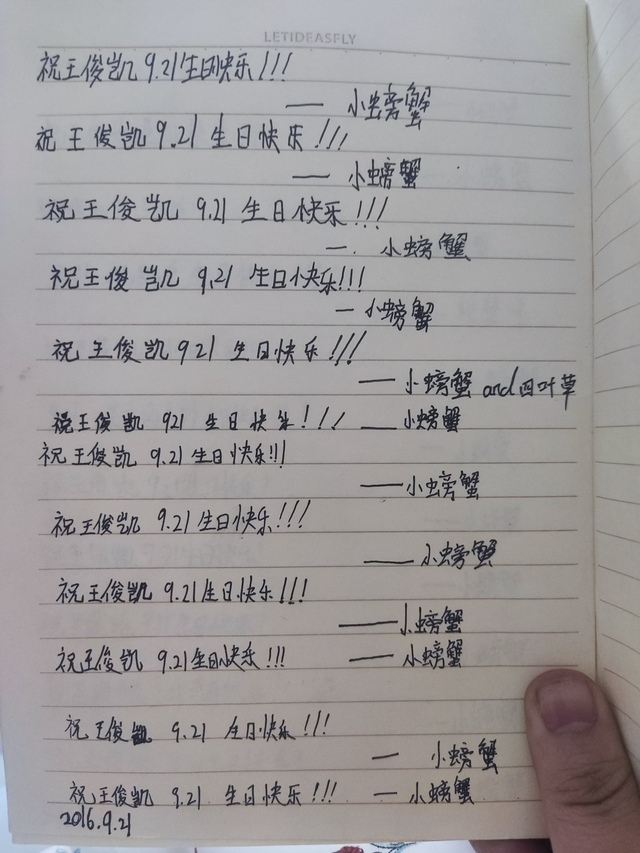 LETIDEASFLY
祝王俊凯9.21生日快乐!!!
—— 小螃蟹
祝王俊凯9.21生日快乐!!!
—— 小螃蟹
祝王俊凯 9.21 生日快乐!!!
—. 小螃蟹
祝王俊凯 9.21 生日快乐!!!
— 小螃蟹
祝王俊凯 921 生日快乐!!!
—— 小螃蟹 and 四叶草
祝王俊凯 921 生日快乐!!! —— 小螃蟹
祝王俊凯 9.21 生日快乐!!!
—— 小螃蟹
祝王俊凯 9.21 生日快乐!!!
—— 小螃蟹
祝王俊凯 9.21 生日快乐!!!
—— 小螃蟹
祝王俊凯 9.21 生日快乐!!! —— 小螃蟹
祝王俊凯 9.21 生日快乐!!!
— 小螃蟹
祝王俊凯 9.21 生日快乐!!! — 小螃蟹
2016.9.21